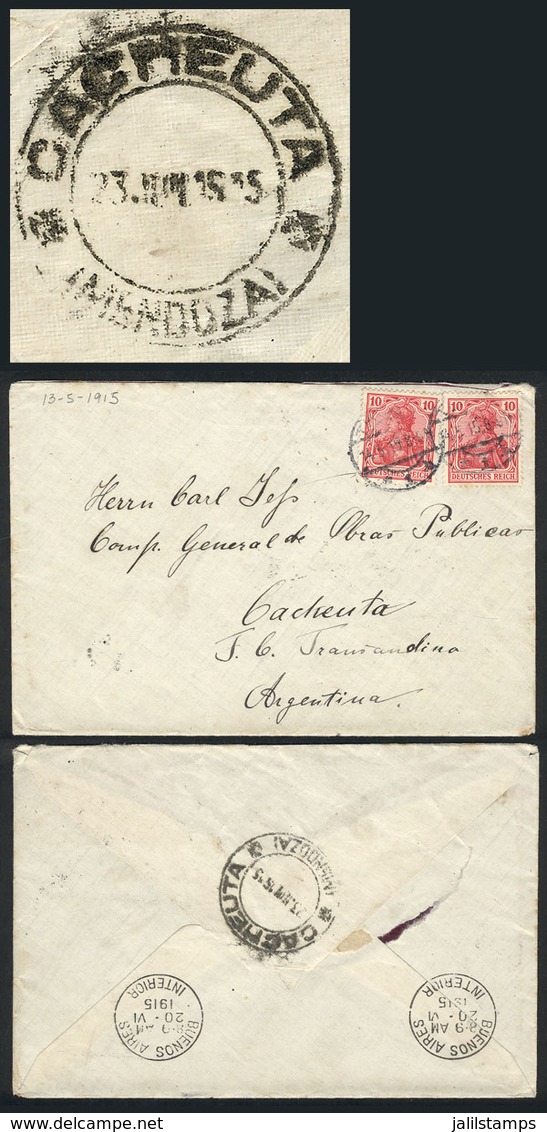 CACHEUTA
(MENDOZA)
13-5-1915
10 10
DEUTSCHES REICH
10 10
DEUTSCHES REICH
Herrn Carl Jess
Comp. General de Obras Publicas
Cacheuta
F. C. Transandino
Argentina.
CACHEUTA
(MENDOZA)
BUENOS AIRES
8-9 AM
20-VI
1915
INTERIOR
BUENOS AIRES
8-9 AM
20-VI
1915
INTERIOR
www.delcampe.net
jalilstamps